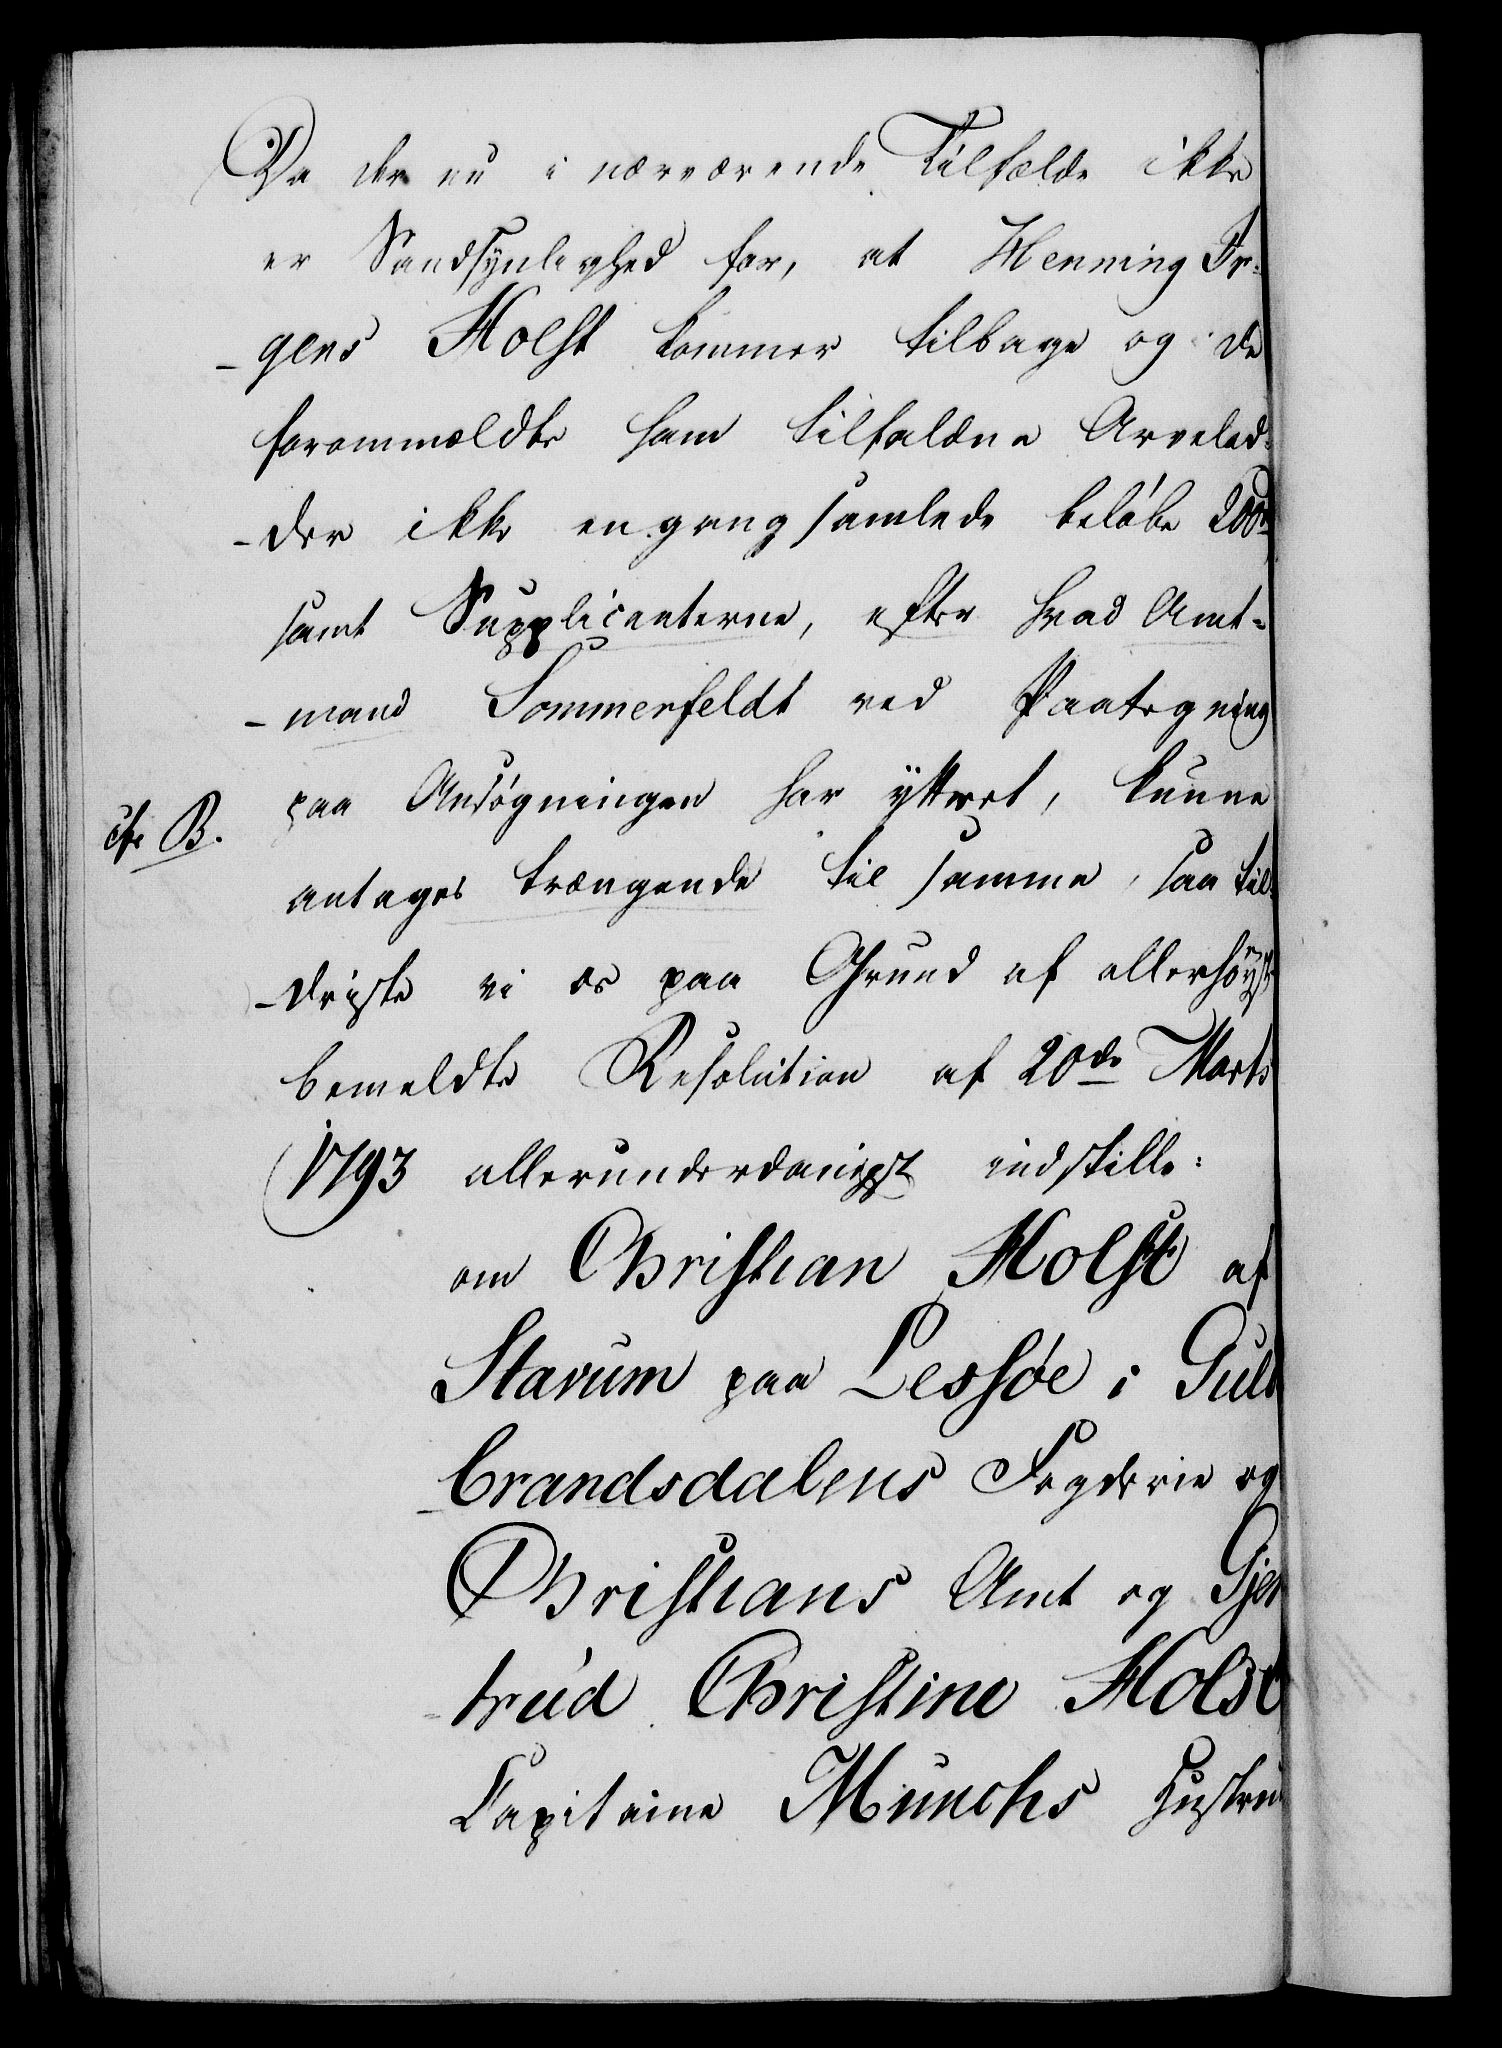 Da der nu i nærværende Tilfælde ikke
er Sandsynlighed for, at Henning Ir-
-gens Holst kommer tilbage og de
forommeldte ham tilfaldne Arvelod-
-der ikke engang samlede beløbe 200 rd
samt Supplicanterne, efter hvad Amt-
-mand Sommerfeldt ved Paategning
paa Ansøgningen har yttret, kunne
cfr B.
antages trængende til samme, saa til-
-driste vi os paa Grund af allerhøyst-
bemeldte Resolution af 20de Marts
1793 allerunderdanigst indstille:
om Christian Holst af
Stavum paa Lessøe i Guld
-brandsdalens Fogderie og
Christians Amt og Gjer
-trud Christine Holst
Capitaine Munchs Hustru